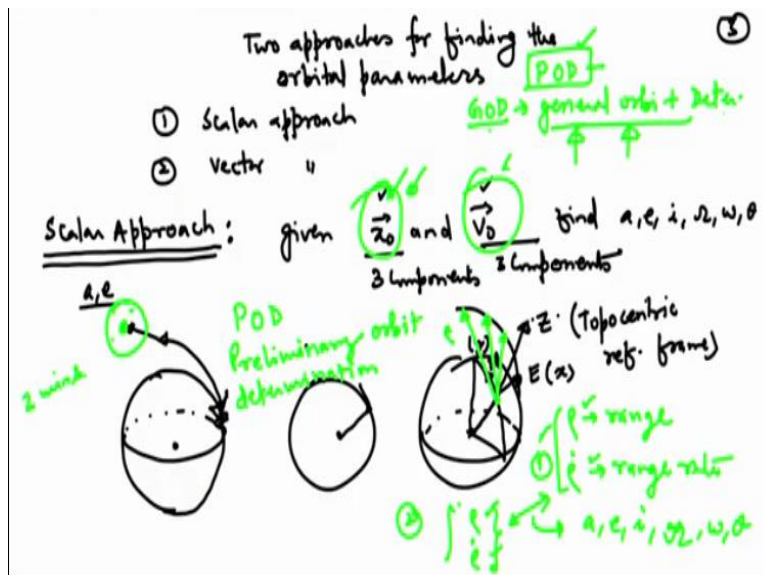 Two approaches for finding the
orbital parameters
③
POD
GOD → general orbit Deter.
① Scalar approach
② Vector "
Scalar Approach: given x⃗₀ and v⃗₀ find a, e, i, Ω, ω, θ
3 Components 3 Components
a, e
POD
Preliminary orbit
determination
Z (Topocentric
ref. frame)
E(x)
(y)
ρ
① ρ → range
ρ̇ → range rate
② ρ
ρ̇
→ a, e, i, Ω, ω, θ